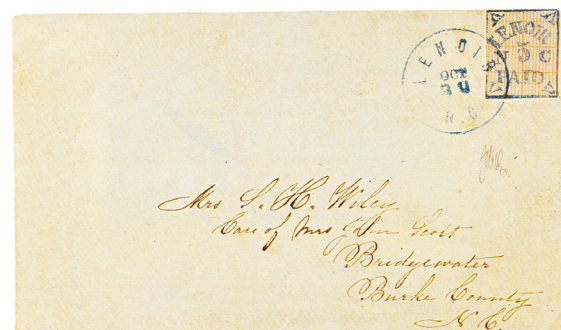 LENOIR
OCT
30
N.C.
LENOIR
5 C
PAID
Mrs S. H. Wiley
Care of Mrs Scott
Bridgewater
Burke County
N. C.